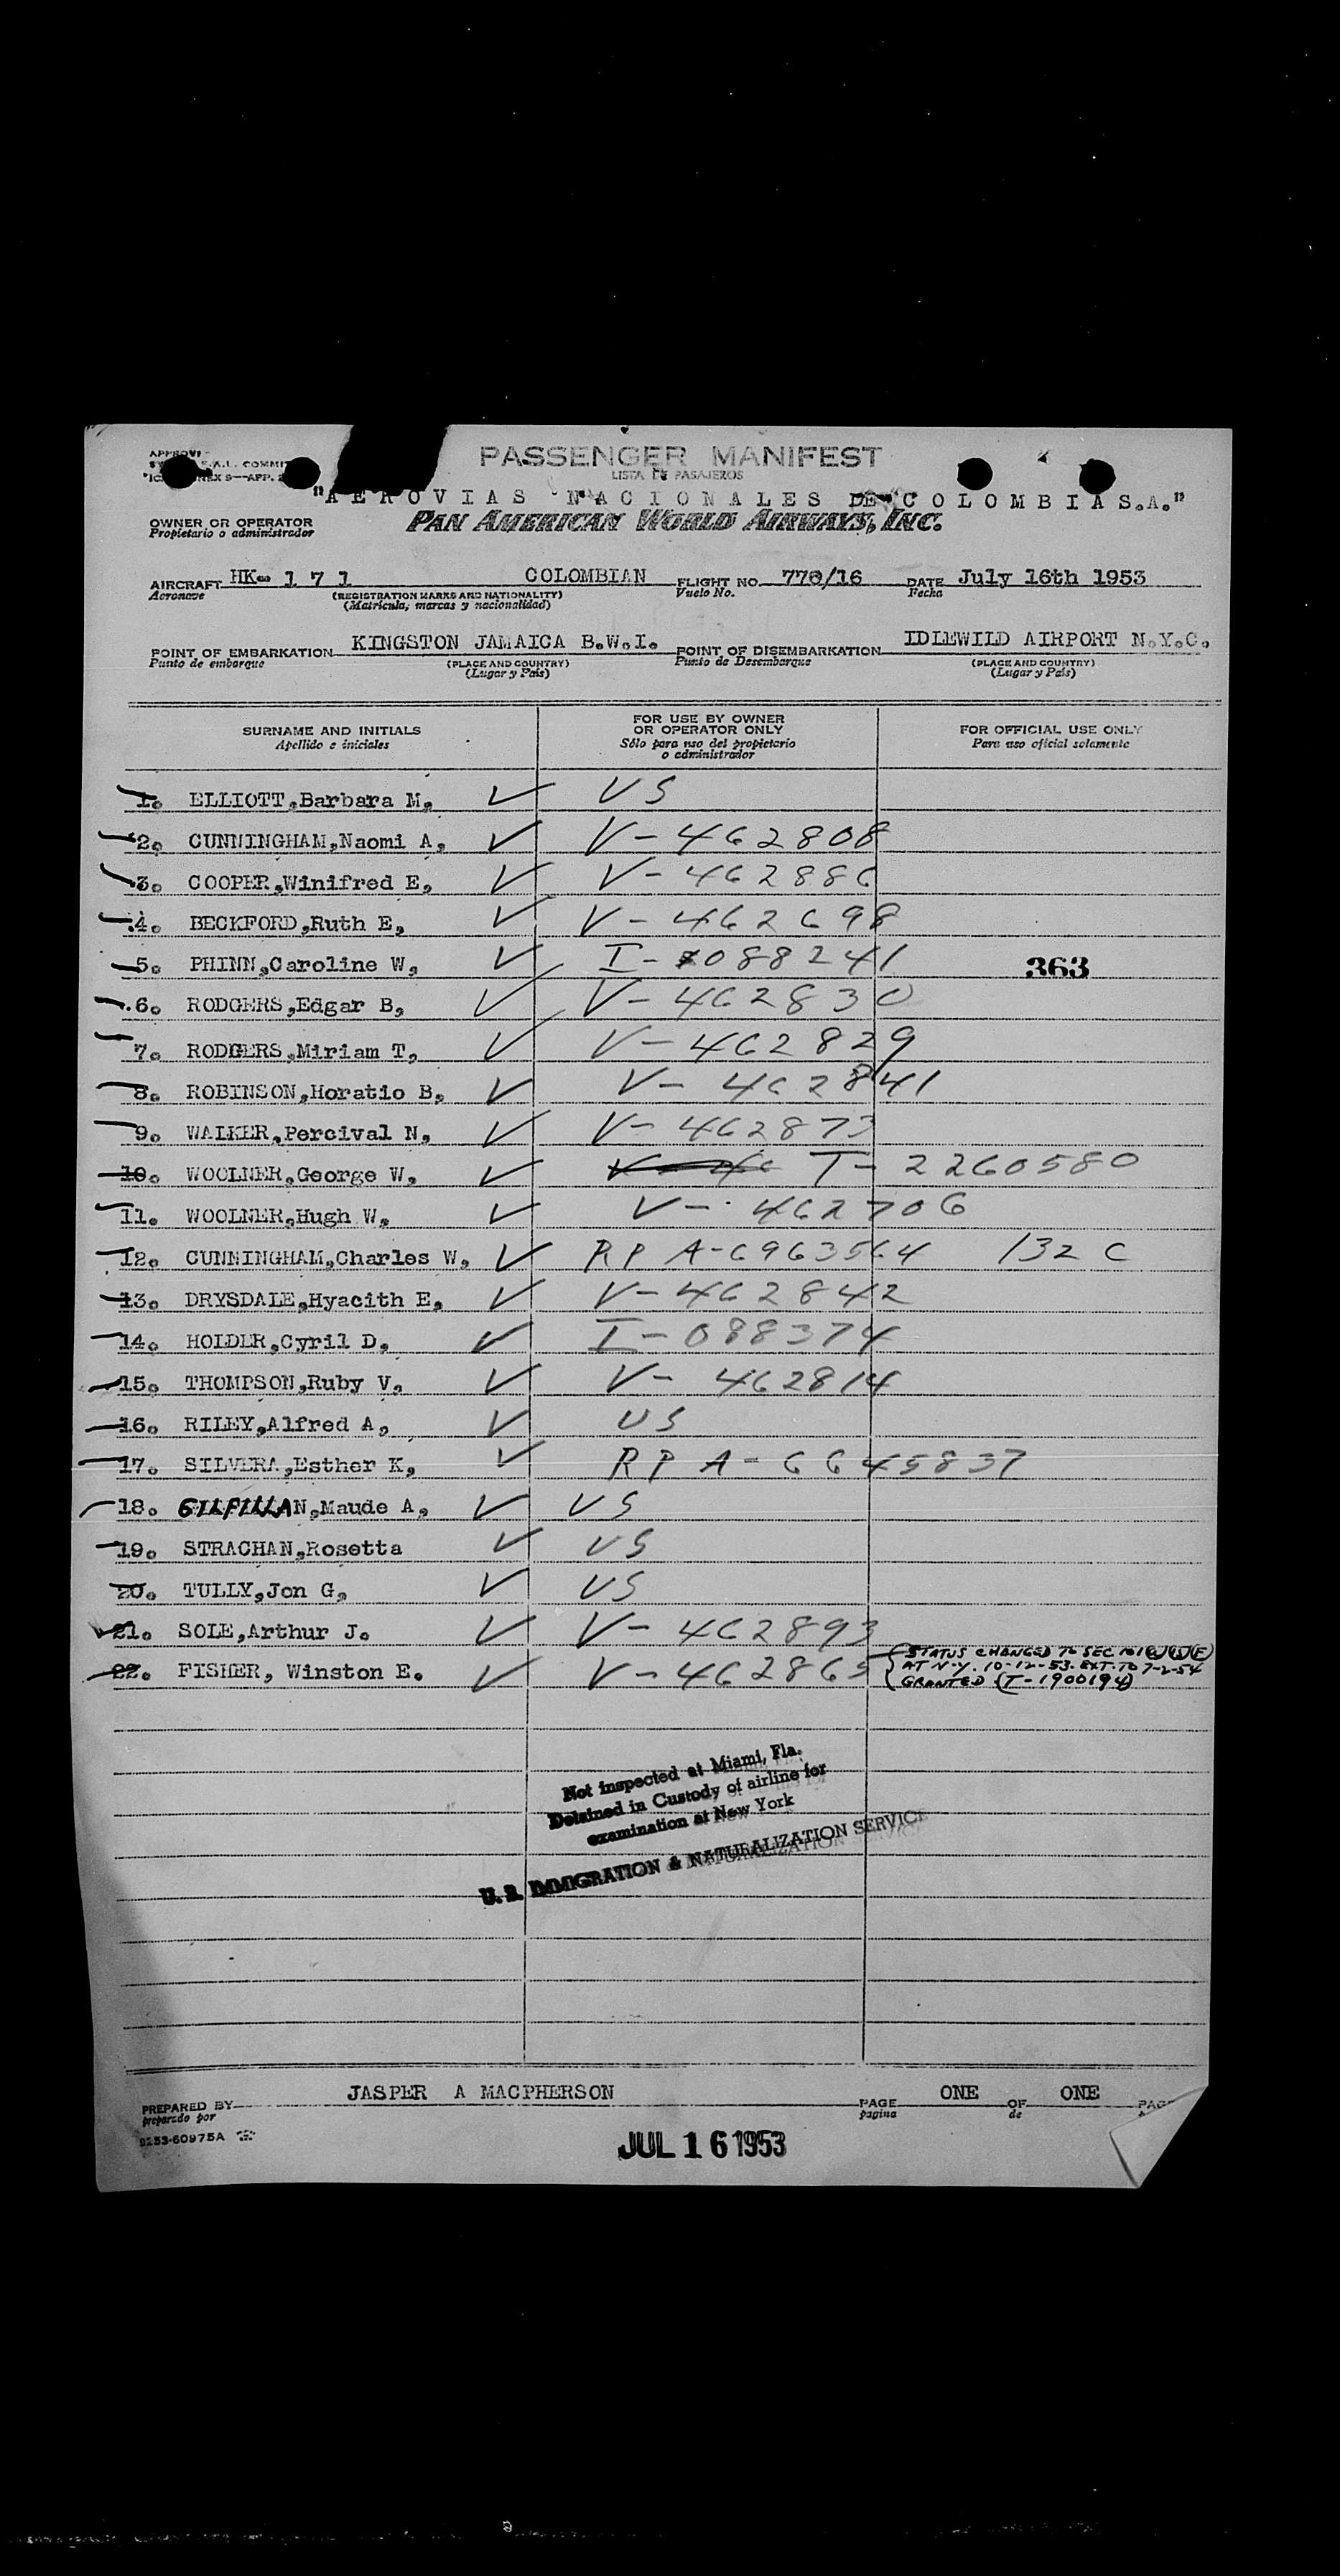 PASSENGER MANIFEST
LISTA DE PASAJEROS
"AEROVIAS NACIONALES DE COLOMBIA S.A."
OWNER OR OPERATOR
Propietario o administrador
PAN AMERICAN WORLD AIRWAYS, INC.
AIRCRAFT HK- 1 7 1 COLOMBIAN FLIGHT NO. 770/16 DATE July 16th 1953
Aeronave (REGISTRATION MARKS AND NATIONALITY) Vuelo No. Fecha
(Matrícula, marcas y nacionalidad)
POINT OF EMBARKATION KINGSTON JAMAICA B.W.I. POINT OF DISEMBARKATION IDLEWILD AIRPORT N.Y.C.
Punto de embarque (PLACE AND COUNTRY) Punto de Desembarque (PLACE AND COUNTRY)
(Lugar y País) (Lugar y País)
SURNAME AND INITIALS FOR USE BY OWNER OR OPERATOR ONLY FOR OFFICIAL USE ONLY
Apellido e iniciales Sólo para uso del propietario o administrador Para uso oficial solamente
1. ELLIOTT,Barbara M, ✓ US
2. CUNNINGHAM,Naomi A, ✓ V-462808
3. COOPER,Winifred E, ✓ V-462886
4. BECKFORD,Ruth E, ✓ V-462698
5. PHINN,Caroline W, ✓ I-088241 363
6. RODGERS,Edgar B, ✓ V-462830
7. RODGERS,Miriam T, ✓ V-462829
8. ROBINSON,Horatio B, ✓ V-462841
9. WALKER,Percival N, ✓ V-462873
10. WOOLNER,George W, ✓ T-2260580
11. WOOLNER,Hugh W, ✓ V-462706
12. CUNNINGHAM,Charles W, ✓ RP A-6963564 132 C
13. DRYSDALE,Hyacith E, ✓ V-462842
14. HOLDER,Cyril D, ✓ I-088374
15. THOMPSON,Ruby V, ✓ V-462814
16. RILEY,Alfred A, ✓ US
17. SILVERA,Esther K, ✓ RP A-6645837
18. GILFILLAN,Maude A, ✓ US
19. STRACHAN,Rosetta ✓ US
20. TULLY,Jon G, ✓ US
21. SOLE,Arthur J. ✓ V-462893
22. FISHER, Winston E. ✓ V-462865
STATUS CHANGED TO SEC 101
AT N.Y. 10-12-53. EXT. TO 7-2-54
GRANTED (T-1900194)
Not inspected at Miami, Fla.
Detained in Custody of airline for
examination at New York
U. S. IMMIGRATION & NATURALIZATION SERVICE
PREPARED BY JASPER A MACPHERSON PAGE ONE OF ONE
preparado por pagina de
9253-60975A
JUL 16 1953